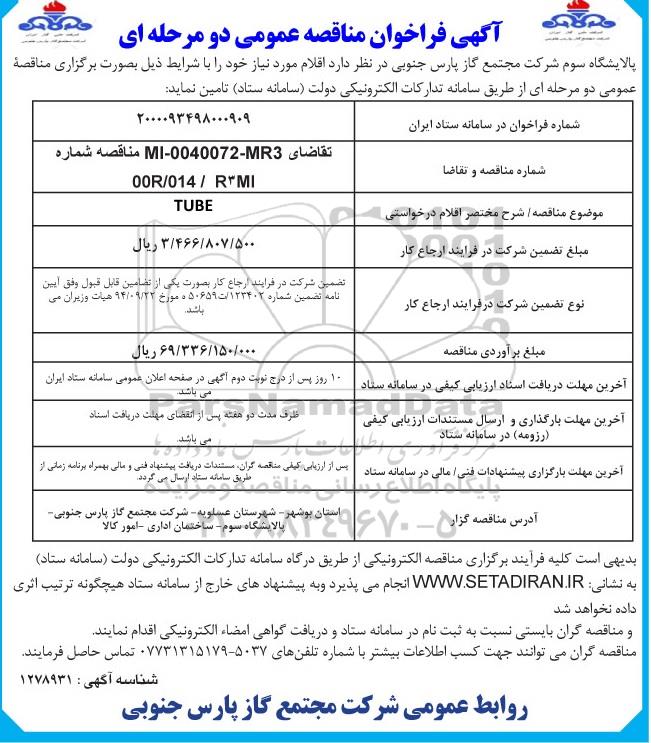 آگهی فراخوان مناقصه عمومی دو مرحله ای
پالایشگاه سوم شرکت مجتمع گاز پارس جنوبی در نظر دارد اقلام مورد نیاز خود را با شرایط ذیل بصورت برگزاری مناقصهٔ
عمومی دو مرحله ای از طریق سامانه تدارکات الکترونیکی دولت (سامانه ستاد) تامین نماید:
شماره فراخوان در سامانه ستاد ایران
۲۰۰۰۰۹۳۴۹۸۰۰۰۹۰۹
شماره مناقصه و تقاضا
تقاضای MI-0040072-MR3 مناقصه شماره
00R/014 / R۳MI
موضوع مناقصه/ شرح مختصر اقلام درخواستی
TUBE
مبلغ تضمین شرکت در فرایند ارجاع کار
۳/۴۶۶/۸۰۷/۵۰۰ ریال
نوع تضمین شرکت درفرایند ارجاع کار
تضمین شرکت در فرایند ارجاع کار بصورت یکی از تضامین قابل قبول وفق آیین
نامه تضمین شماره ۱۲۳۴۰۲/ت۵۰۶۵۹ ه مورخ ۹۴/۰۹/۲۲ هیات وزیران می
باشد.
مبلغ برآوردی مناقصه
۶۹/۳۳۶/۱۵۰/۰۰۰ ریال
آخرین مهلت دریافت اسناد ارزیابی کیفی در سامانه ستاد
۱۰ روز پس از درج نوبت دوم آگهی در صفحه اعلان عمومی سامانه ستاد ایران
می باشد.
آخرین مهلت بارگذاری و ارسال مستندات ارزیابی کیفی
(رزومه) در سامانه ستاد
ظرف مدت دو هفته پس از انقضای مهلت دریافت اسناد
می باشد.
آخرین مهلت بارگزاری پیشنهادات فنی/ مالی در سامانه ستاد
پس از ارزیابی کیفی مناقصه گران، مستندات دریافت پیشنهاد فنی و مالی بهمراه برنامه زمانی از
طریق سامانه ستاد ارسال می گردد.
آدرس مناقصه گزار
استان بوشهر- شهرستان عسلویه- شرکت مجتمع گاز پارس جنوبی-
پالایشگاه سوم- ساختمان اداری -امور کالا
بدیهی است کلیه فرآیند برگزاری مناقصه الکترونیکی از طریق درگاه سامانه تدارکات الکترونیکی دولت (سامانه ستاد)
به نشانی: WWW.SETADIRAN.IR انجام می پذیرد وبه پیشنهاد های خارج از سامانه ستاد هیچگونه ترتیب اثری
داده نخواهد شد
و مناقصه گران بایستی نسبت به ثبت نام در سامانه ستاد و دریافت گواهی امضاء الکترونیکی اقدام نمایند.
مناقصه گران می توانند جهت کسب اطلاعات بیشتر با شماره تلفن‌های ۵۰۳۷-۰۷۷۳۱۳۱۵۱۷۹ تماس حاصل فرمایند.
شناسه آگهی : ۱۲۷۸۹۳۱
روابط عمومی شرکت مجتمع گاز پارس جنوبی
ParsNamadData
پایگاه اطلاع رسانی مناقصه و مزایده